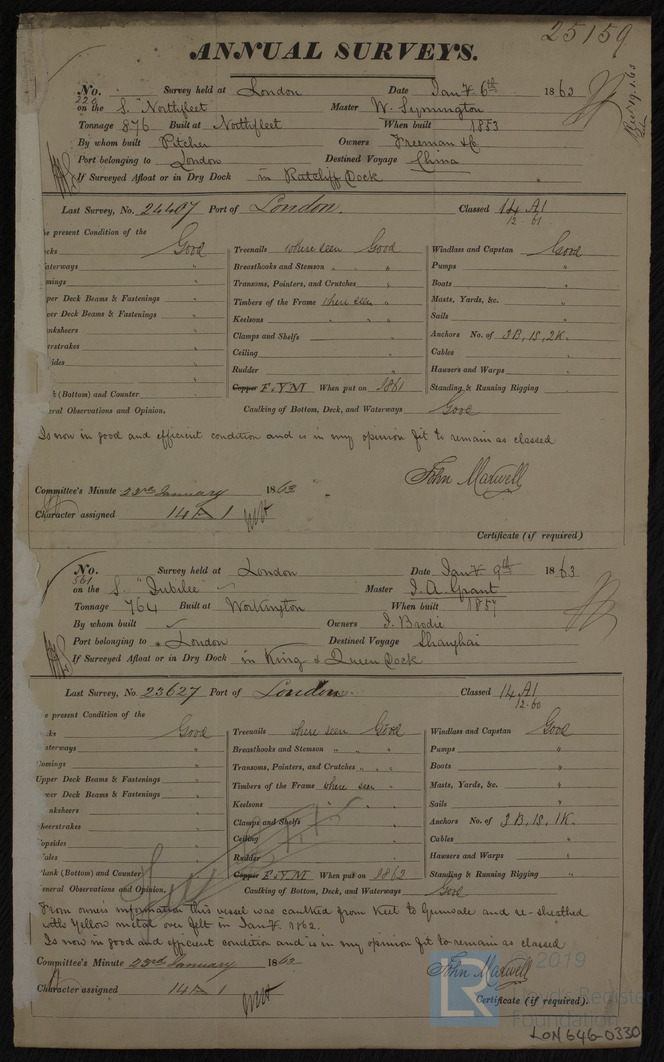 25159
ANNUAL SURVEYS.
No. 220 Survey held at London Date Jany 6th 1863
on the S. "Northfleet Master W. Symington
Tonnage 876 Built at Northfleet When built 1853
By whom built Pitcher Owners Freeman &C
Port belonging to London Destined Voyage China
If Surveyed Afloat or in Dry Dock in Ratcliff Dock
Last Survey, No. 24407 Port of London. Classed 14 A1
12.61
he present Condition of the
cks Good Treenails where seen Good Windlass and Capstan Good
aterways " Breasthooks and Stemson " " Pumps "
mings " Transoms, Pointers, and Crutches " Boats "
per Deck Beams & Fastenings " Timbers of the Frame where seen " Masts, Yards, &c. "
wer Deck Beams & Fastenings " Keelsons " " Sails "
nksheers " Clamps and Shelfs " Anchors No. of 3B, 1S, 2K.
erstrakes " Ceiling " Cables "
ides " Rudder " Hawsers and Warps "
k (Bottom) and Counter Copper F.Y.M When put on 1861 Standing & Running Rigging "
eral Observations and Opinion, Caulking of Bottom, Deck, and Waterways Good
Is now in good and efficient condition and is in my opinion fit to remain as classed
John Maxwell
Committee's Minute 22nd January 1863
Character assigned 14 A 1
Certificate (if required)
No. 561 Survey held at London Date Jany 9th 1863
on the S. "Jubilee" Master J. A. Grant
Tonnage 764 Built at Workington When built 1857
By whom built Owners J. Brodie
Port belonging to London Destined Voyage Shanghai
If Surveyed Afloat or in Dry Dock in King & Queen Dock
Last Survey, No. 23627 Port of London. Classed 14 A1
12.60
e present Condition of the
ks Good Treenails where seen Good Windlass and Capstan Good
aterways " Breasthooks and Stemson " " Pumps "
Comings " Transoms, Pointers, and Crutches " " Boats "
Upper Deck Beams & Fastenings " Timbers of the Frame where seen " Masts, Yards, &c. "
wer Deck Beams & Fastenings " Keelsons " Sails "
nksheers " Clamps and Shelfs " Anchors No. of 3B, 1S, 1K.
heerstrakes " Ceiling " Cables "
opsides " Rudder " Hawsers and Warps "
Wales "
Plank (Bottom) and Counter Copper F.Y.M When put on 1862 Standing & Running Rigging "
eneral Observations and Opinion, Caulking of Bottom, Deck, and Waterways Good
From owners information this vessel was caulked from Keel to Gunwale and re-sheathed
with Yellow metal over felt in Jany 1862.
Is now in good and efficient condition and is in my opinion fit to remain as classed
Committee's Minute 23rd January 1863
John Maxwell
Character assigned 14 A 1
Certificate (if required).
LR
2019
Lloyd's Register
Foundation
LON646-0330